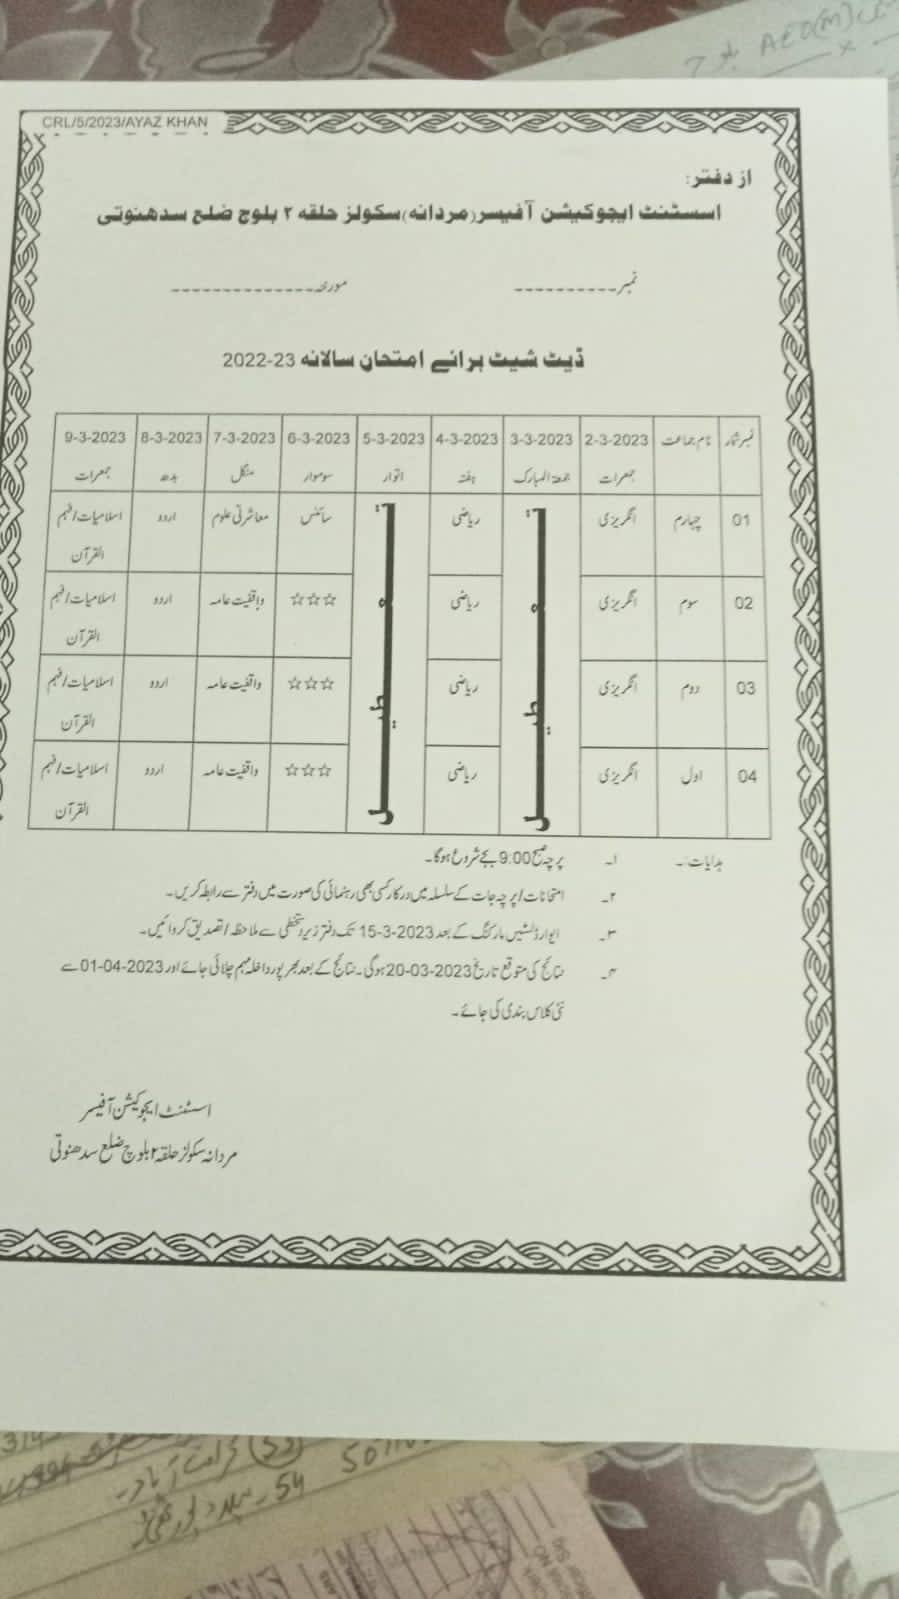 CRL/5/2023/AYAZ KHAN
از دفتر:
اسسٹنٹ ایجوکیشن آفیسر(مردانہ)سکولز حلقہ ۲ بلوچ ضلع سدھنوتی
نمبر---------- مورخہ--------------
ڈیٹ شیٹ برائے امتحان سالانہ 2022-23
نمبر شمار نام جماعت 2-3-2023 3-3-2023 4-3-2023 5-3-2023 6-3-2023 7-3-2023 8-3-2023 9-3-2023
جمعرات جمعۃ المبارک ہفتہ اتوار سوموار منگل بدھ جمعرات
01 چہارم انگریزی تعطیل ریاضی تعطیل سائنس معاشرتی علوم اردو اسلامیات/فہم
القرآن
02 سوم انگریزی ریاضی ☆☆☆ واقفیت عامہ اردو اسلامیات/فہم
القرآن
03 دوم انگریزی ریاضی ☆☆☆ واقفیت عامہ اردو اسلامیات/فہم
القرآن
04 اول انگریزی ریاضی ☆☆☆ واقفیت عامہ اردو اسلامیات/فہم
القرآن
ہدایات:۔ ۱۔ پرچہ صبح 9:00 بجے شروع ہوگا۔
۲۔ امتحانات/پرچہ جات کے سلسلہ میں درکار کسی بھی رہنمائی کی صورت میں دفتر سے رابطہ کریں۔
۳۔ ایوارڈ لسٹیں مارکنگ کے بعد 15-3-2023 تک دفتر زیر دستخطی سے ملاحظہ/تصدیق کروائیں۔
۴۔ نتائج کی متوقع تاریخ 20-03-2023 ہوگی۔ نتائج کے بعد بھرپور داخلہ مہم چلائی جائے اور 01-04-2023 سے
نئی کلاس بندی کی جائے۔
اسسٹنٹ ایجوکیشن آفیسر
مردانہ سکولز حلقہ ۲ بلوچ ضلع سدھنوتی
54